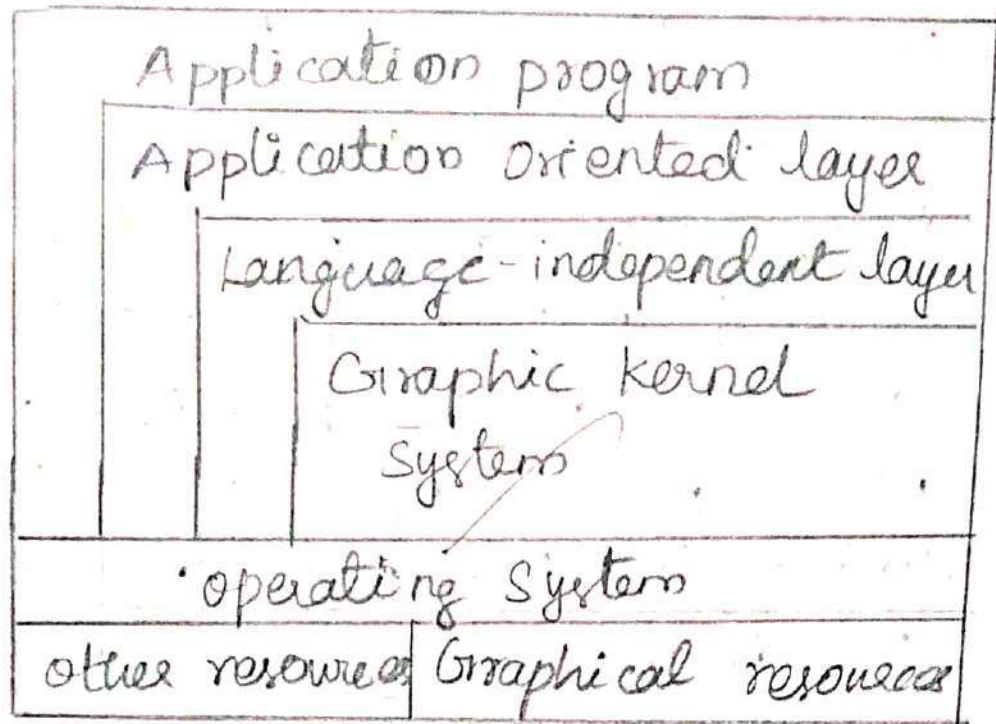 Application program
Application Oriented layer
Language-independent layer
Graphic Kernel
System
operating System
other resources Graphical resources